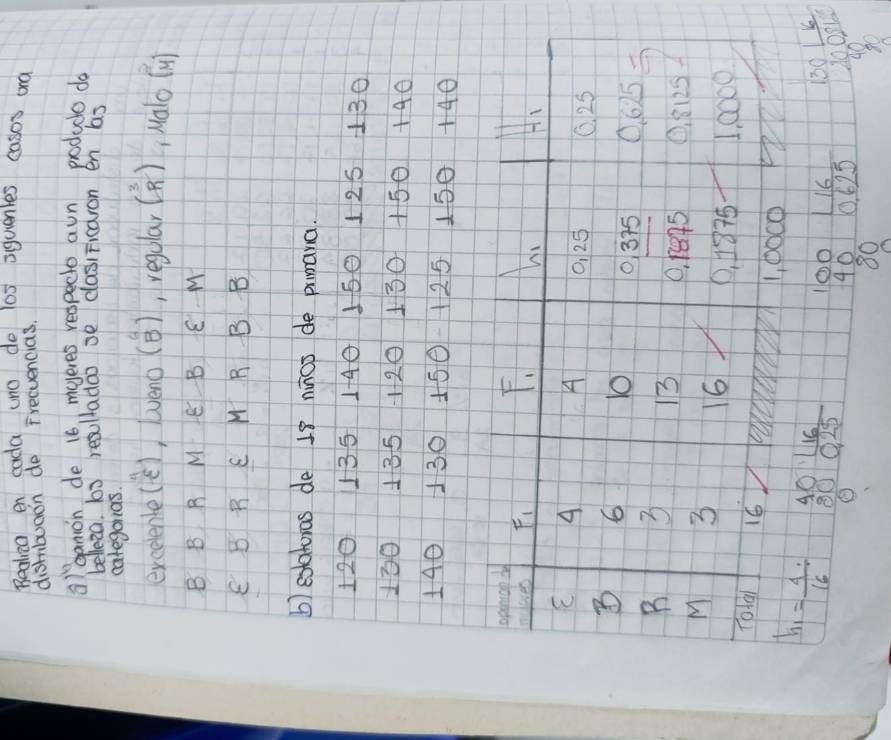 Realiza en cada uno de los siguientes casos una
distribución de Frecuencias.
a) opinión de 16 mujeres respecto aun producto de
belleza. los resultados se clasificaron en las
categorias.
excelente (E), bueno (B), regular (R), Malo (M)
B B R M E B E M
E B R E M R B B
b) estaturas de 18 niños de primaria.
120 135 140 150 125 130
130 135 120 130 150 140
140 130 150 125 150 140
F1 F1 h1 H1
E 4 4 0,25 0,25
B 6 10 0,375 0,625
R 3 13 0,1875 0,8125
M 3 16 0,1875 1,0000
Total 16 1,0000
h1 = 4 40 16 100 16 130 16
16 80 0,25 40 0,625
0 80
0